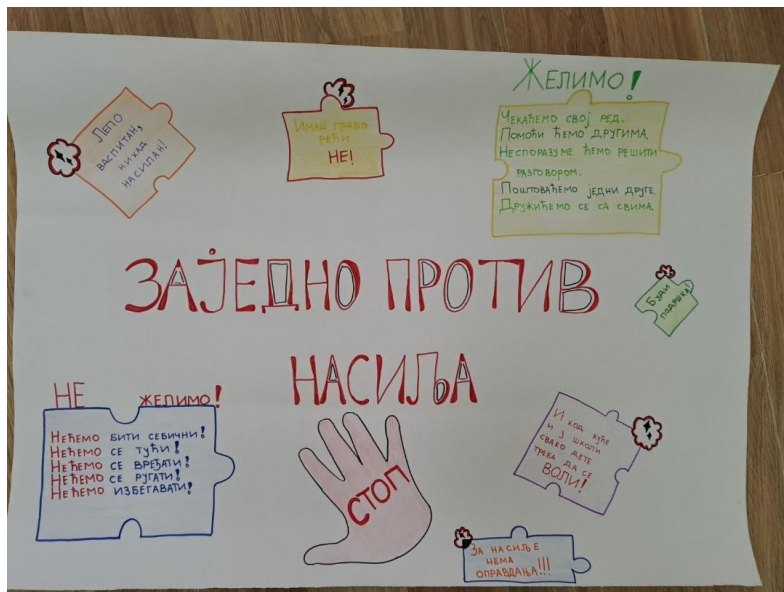 ЛЕПО
ВАСПИТАН,
НИКАД
НАСИЛАН!
ИМАШ ПРАВО
РЕЋИ
НЕ!
ЖЕЛИМО!
ЧЕКАЋЕМО СВОЈ РЕД.
ПОМОЋИ ЋЕМО ДРУГИМА.
НЕСПОРАЗУМЕ ЋЕМО РЕШИТИ
РАЗГОВОРОМ.
ПОШТОВАЋЕМО ЈЕДНИ ДРУГЕ.
ДРУЖИЋЕМО СЕ СА СВИМА.
ЗАЈЕДНО ПРОТИВ
НАСИЉА
БУДИ
ПОДРШКА!
НЕ ЖЕЛИМО!
НЕЋЕМО БИТИ СЕБИЧНИ!
НЕЋЕМО СЕ ТУЋИ!
НЕЋЕМО СЕ ВРЕЂАТИ!
НЕЋЕМО СЕ РУГАТИ!
НЕЋЕМО ИЗБЕГАВАТИ!
СТОП
И КОД КУЋЕ
И У ШКОЛИ
СВАКО ДЕТЕ
ТРЕБА ДА СЕ
ВОЛИ!
ЗА НАСИЉЕ
НЕМА
ОПРАВДАЊА!!!